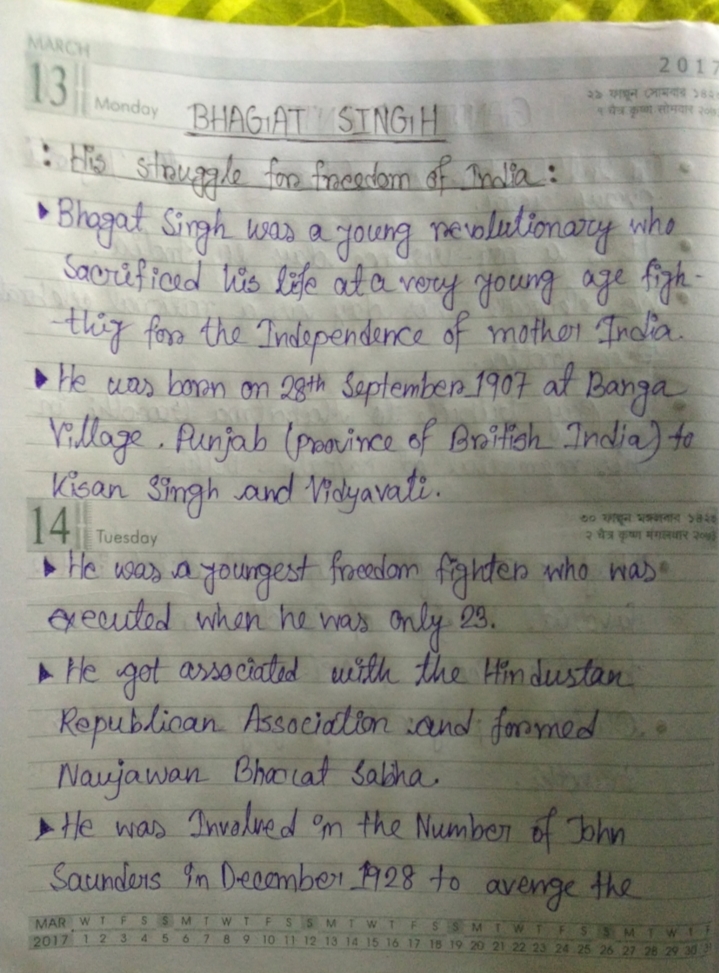 MARCH
2017
13 Monday
২৯ ফাল্গুন সোমবার ১৪২৩
BHAGAT SINGH
: His struggle for freedom of India :
▸ Bhagat Singh was a young revolutionary who
sacrificed his life at a very young age figh-
-thig for the Independence of mother India.
▸ He was born on 28th September 1907 at Banga
Village. Punjab (province of British India) to
Kisan Singh and Vidyavati.
14 Tuesday
▸ He was a youngest freedom fighter who was
executed when he was only 23.
▸ He got associated with the Hindustan
Republican Association and formed
Naujawan Bharat Sabha.
▸ He was Involved in the Number of John
Saunders in December 1928 to avenge the
MAR W T F S S M T W T F S S M T W T F S S M T W T F S S M T W T F
2017 1 2 3 4 5 6 7 8 9 10 11 12 13 14 15 16 17 18 19 20 21 22 23 24 25 26 27 28 29 30 31